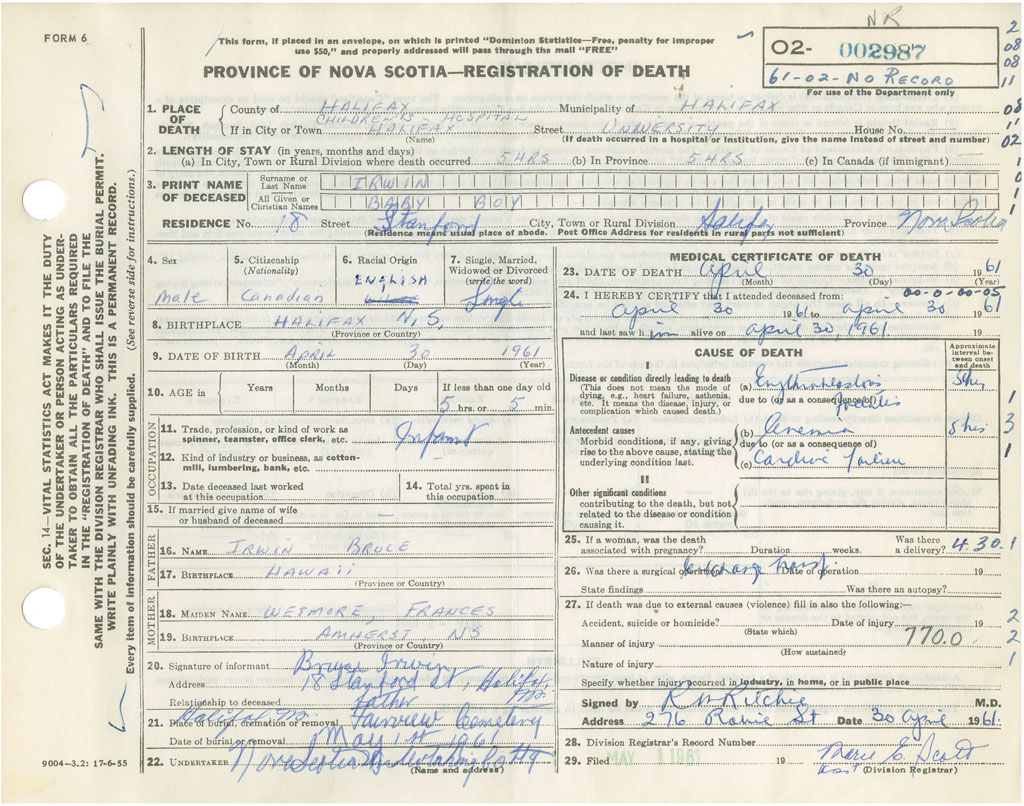 FORM 6
This form, if placed in an envelope, on which is printed "Dominion Statistics—Free, penalty for improper
use $50," and properly addressed will pass through the mail "FREE"
PROVINCE OF NOVA SCOTIA—REGISTRATION OF DEATH
NR
O2- 002987
61-02-NO RECORD
For use of the Department only
2
08
08
11
08
11
02
1. PLACE OF DEATH
County of HALIFAX Municipality of HALIFAX
CHILDREN'S HOSPITAL
If in City or Town HALIFAX Street UNIVERSITY House No.
(Name) (If death occurred in a hospital or institution, give the name instead of street and number)
2. LENGTH OF STAY (in years, months and days)
(a) In City, Town or Rural Division where death occurred 5 HRS (b) In Province 5 HRS (c) In Canada (if immigrant) —
3. PRINT NAME OF DECEASED
Surname or Last Name IRWIN
All Given or Christian Names BABY BOY
RESIDENCE No. 18 Street Stanford City, Town or Rural Division Halifax Province Nova Scotia
(Residence means usual place of abode. Post Office Address for residents in rural parts not sufficient)
4. Sex
male
5. Citizenship
(Nationality)
Canadian
6. Racial Origin
ENGLISH
7. Single, Married,
Widowed or Divorced
(write the word)
Single
8. BIRTHPLACE HALIFAX N.S.
(Province or Country)
9. DATE OF BIRTH APRIL 30 1961
(Month) (Day) (Year)
10. AGE in Years Months Days If less than one day old
5 hrs. or 5 min.
OCCUPATION
11. Trade, profession, or kind of work as
spinner, teamster, office clerk, etc. Infant
12. Kind of industry or business, as cotton-
mill, lumbering, bank, etc.
13. Date deceased last worked
at this occupation
14. Total yrs. spent in
this occupation
15. If married give name of wife
or husband of deceased —
FATHER
16. NAME IRWIN BRUCE
17. BIRTHPLACE HAWAII
(Province or Country)
MOTHER
18. MAIDEN NAME WETMORE, FRANCES
19. BIRTHPLACE AMHERST, NS
(Province or Country)
20. Signature of informant Bruce Irwin
Address 18 Stanford St, Halifax
Relationship to deceased father
21. Place of burial, cremation or removal Halifax Fairview Cemetery
Date of burial or removal May 1st 1961
22. UNDERTAKER Nova Scotia Undertaking
(Name and address)
MEDICAL CERTIFICATE OF DEATH
23. DATE OF DEATH April 30 1961
(Month) (Day) (Year)
24. I HEREBY CERTIFY that I attended deceased from: 00-0-00-05
April 30 1961 to April 30 1961
and last saw him alive on April 30, 1961 19
CAUSE OF DEATH
Approximate interval between onset and death
I
Disease or condition directly leading to death
(This does not mean the mode of
dying, e.g., heart failure, asthenia,
etc. It means the disease, injury, or
complication which caused death.)
(a) Erythroblastosis 5 hrs
due to (or as a consequence of) foetalis
Antecedent causes
Morbid conditions, if any, giving
rise to the above cause, stating the
underlying condition last.
(b) Anemia 5 hrs
due to (or as a consequence of)
(c) Cardiac Failure
1
3
1
II
Other significant conditions
contributing to the death, but not
related to the disease or condition
causing it.
25. If a woman, was the death
associated with pregnancy? Duration weeks. Was there
a delivery? 4.30.1
26. Was there a surgical operation? Date of operation 19
State findings Was there an autopsy?
27. If death was due to external causes (violence) fill in also the following:—
Accident, suicide or homicide? Date of injury 19
(State which)
Manner of injury 770.0
(How sustained)
Nature of injury
Specify whether injury occurred in industry, in home, or in public place
2
2
1
Signed by R M Ritchie M.D.
Address 276 Date 30 April 1961
28. Division Registrar's Record Number
29. Filed MAY 1 1961 19 Marie E. Scott
(Division Registrar)
SEC. 14—VITAL STATISTICS ACT MAKES IT THE DUTY
OF THE UNDERTAKER OR PERSON ACTING AS UNDER-
TAKER TO OBTAIN ALL THE PARTICULARS REQUIRED
IN THE "REGISTRATION OF DEATH" AND TO FILE THE
SAME WITH THE DIVISION REGISTRAR WHO SHALL ISSUE THE BURIAL PERMIT.
WRITE PLAINLY WITH UNFADING INK. THIS IS A PERMANENT RECORD.
Every item of information should be carefully supplied. (See reverse side for instructions.)
9004—3.2: 17-6-55